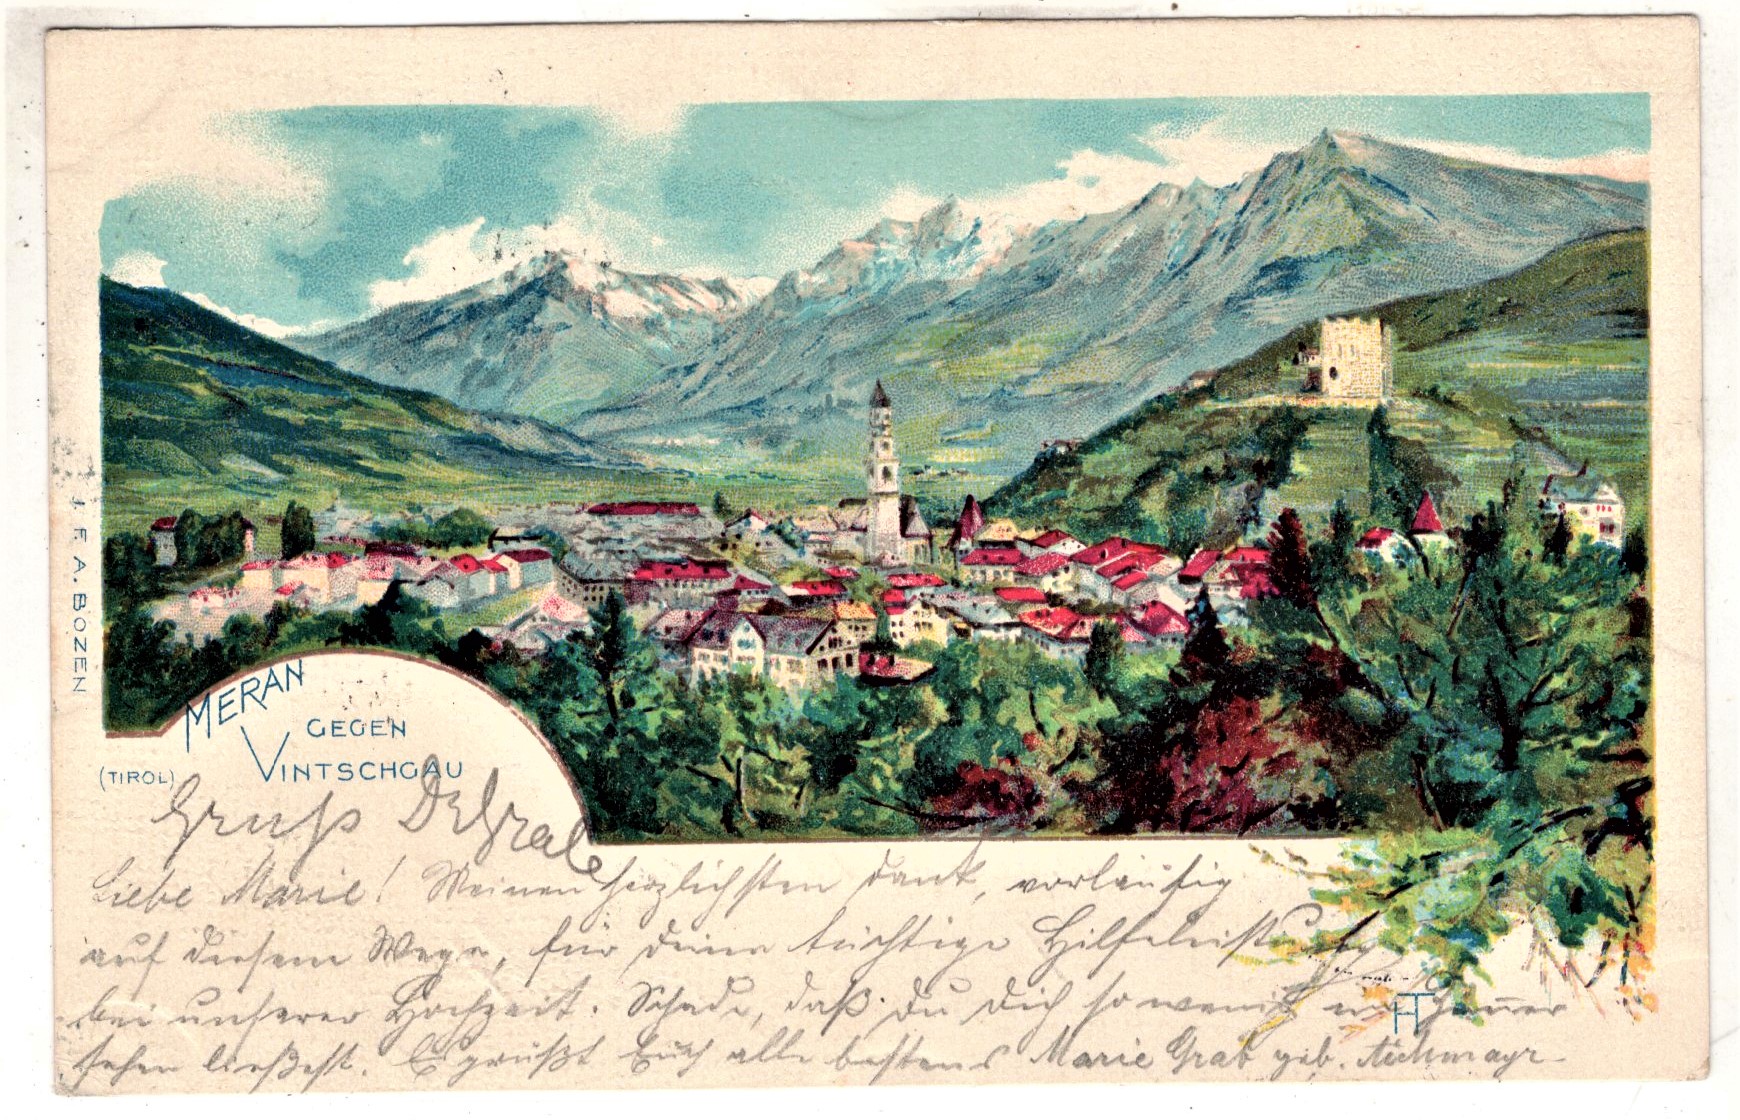 J. F. A. BOZEN
MERAN
GEGEN
VINTSCHGAU
(TIROL)
Gruß Dr Grab
Liebe Marie! Meinen herzlichsten Dank, vorläufig
auf diesem Wege, für deine tüchtige Hilfeleistung
bei unserer Hochzeit. Schade, daß du dich so wenig
sehen ließest. Es grüßt Euch alle bestens Marie Grab geb. Aichmayr
HT